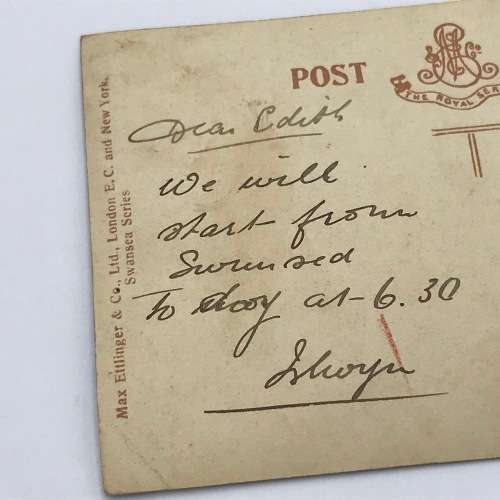 Max Ettlinger & Co., Ltd., London E.C. and New York.
Swansea Series
POST
THE ROYAL SER
Dear Edith
We will
start from
To day at 6.30
Islwyn